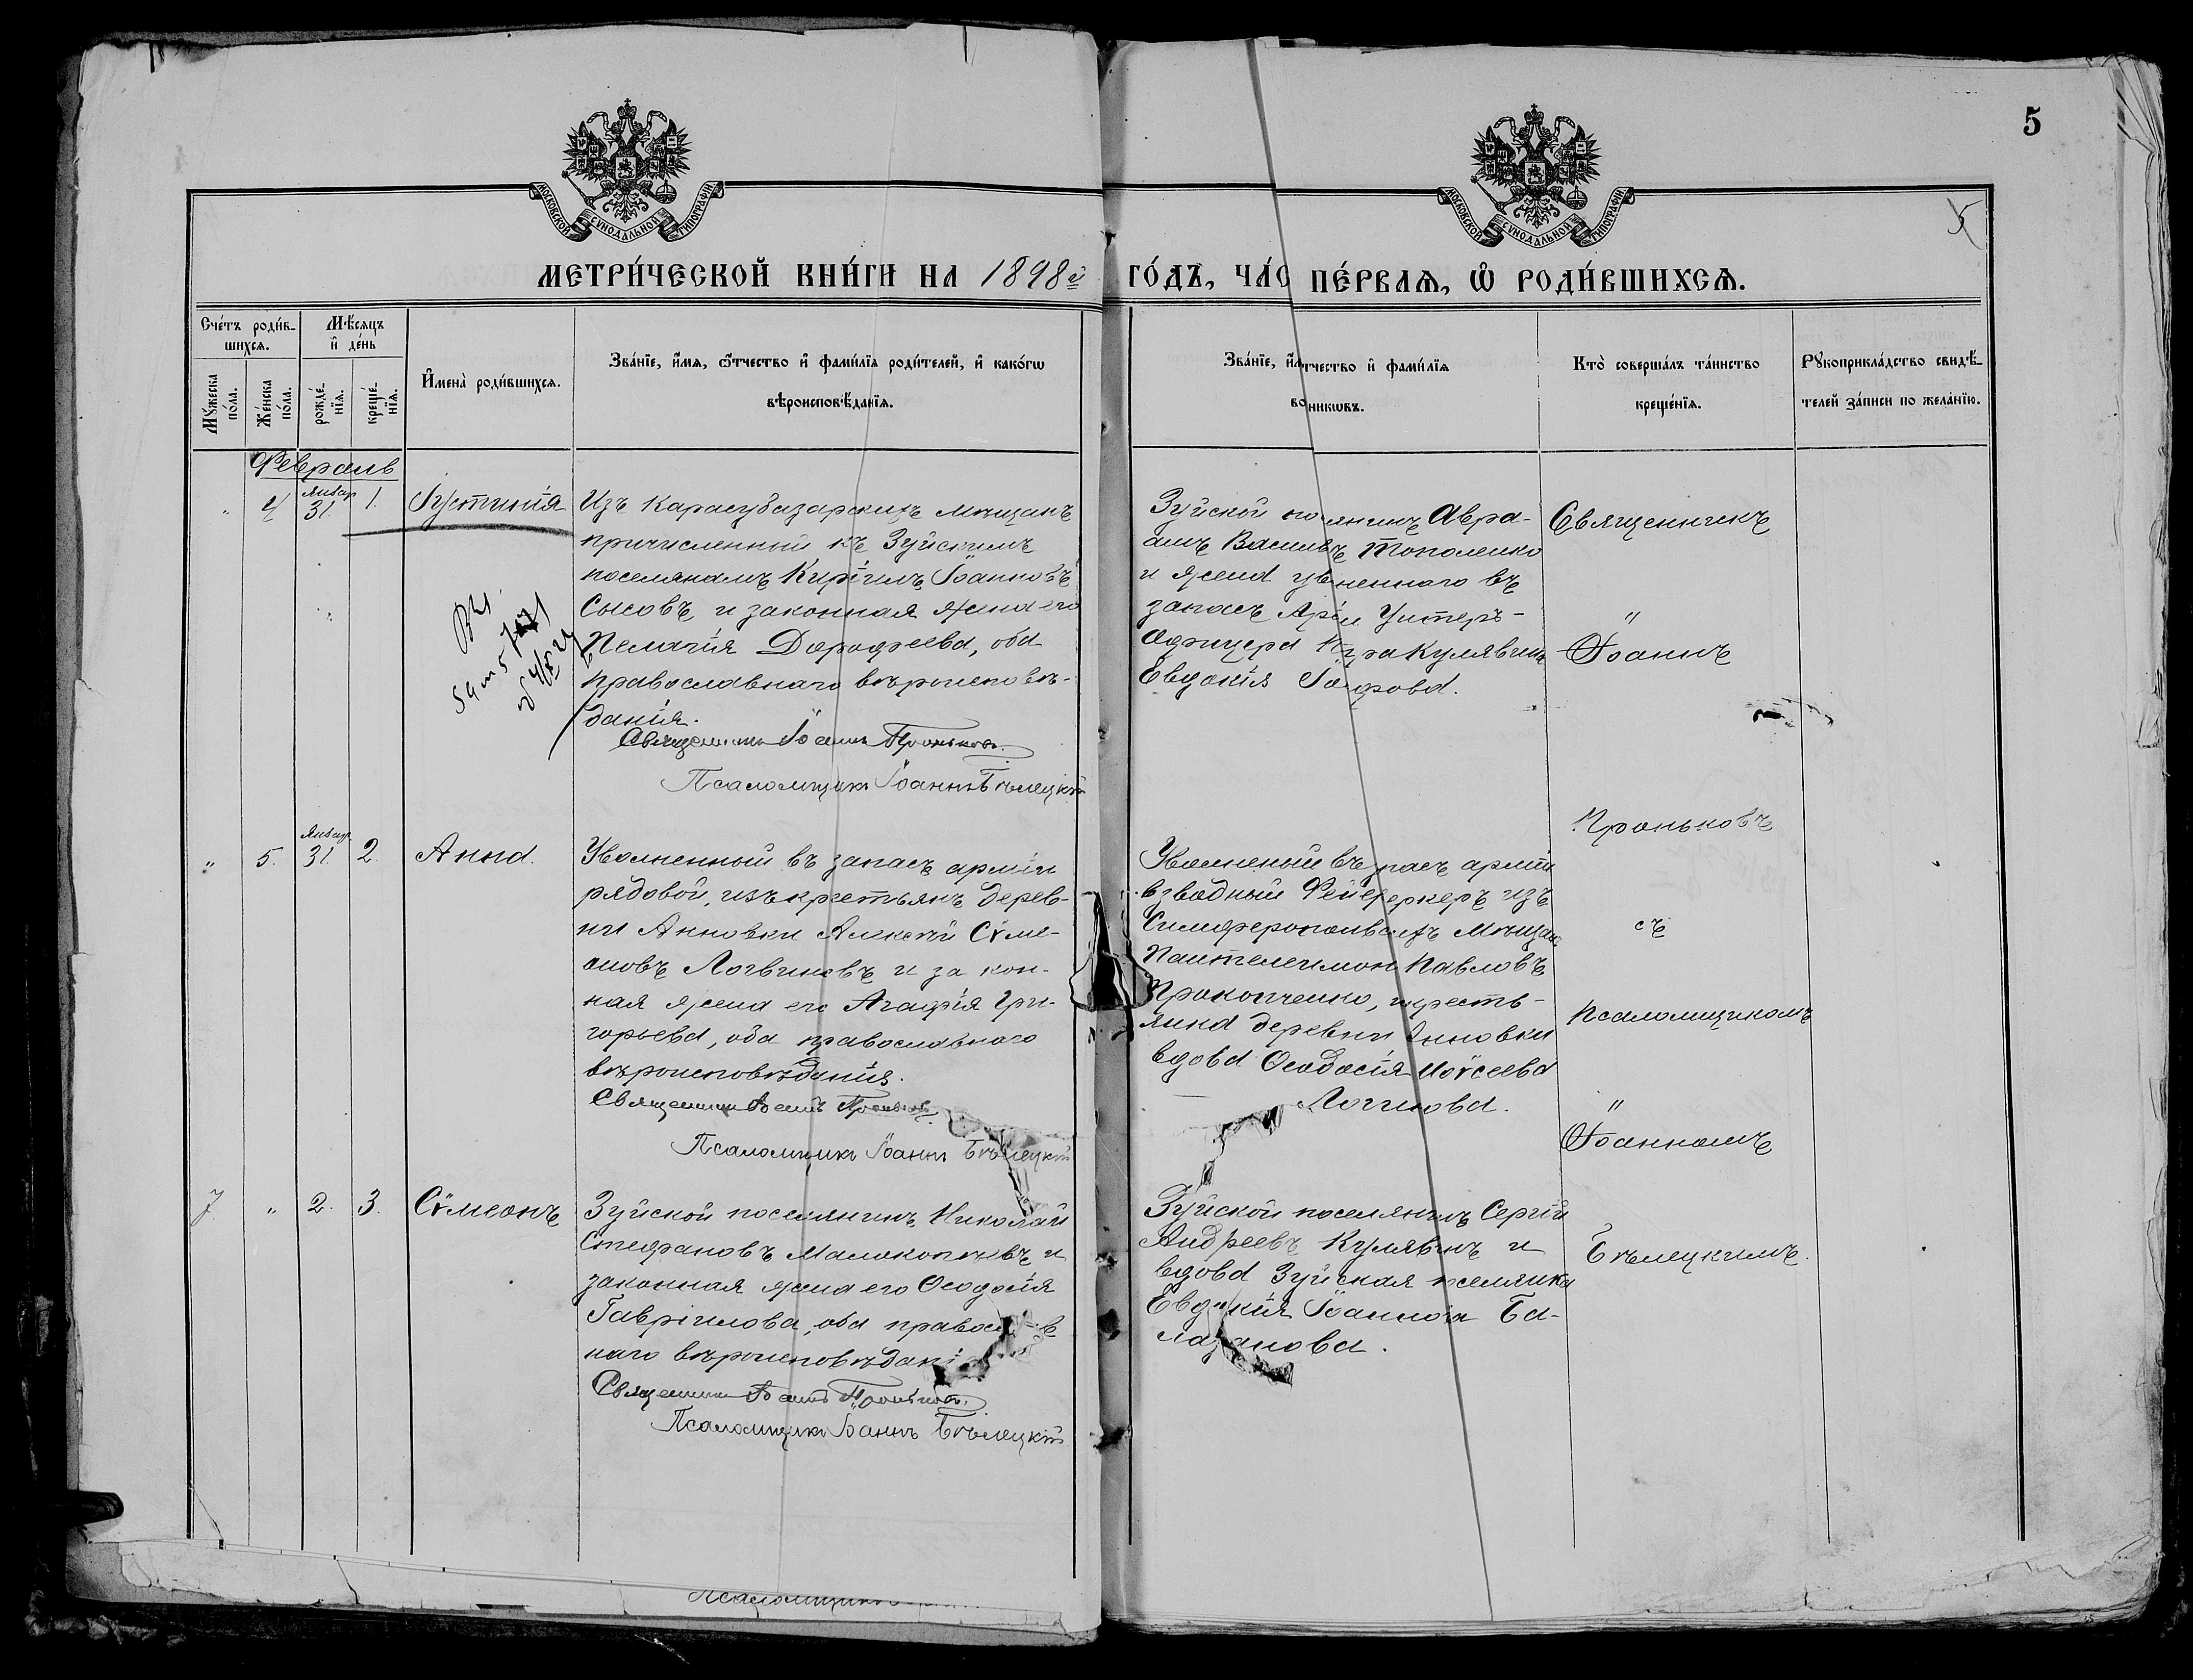 5
МОСКОВСКОЙ СѴНОДАЛЬНОЙ ТИПОГРАФІИ
МОСКОВСКОЙ СѴНОДАЛЬНОЙ ТИПОГРАФІИ
5
МЕТРИ́ЧЕСКОЙ КНИ́ГИ НА 1898й
ГО́ДЪ, ЧА́С ПЕ́РВАѦ, Ѽ РОДИ́ВШИХСѦ.
Сче́тъ роди́в-
шихсѧ.
Мѣ́сѧцъ
и҆ де́нь
Мꙋ́жеска по́ла.
Же́нска по́ла.
рожде́-нїѧ.
креще́-нїѧ.
И҆мена̀ роди́вшихсѧ.
Зва́нїе, и҆́мѧ, ѻ҆́тчество и҆ фами́лїѧ роди́телей, и҆ како́гѡ
вѣроисповѣ́данїѧ.
Зва́нїе, и҆́ тчество и҆ фами́лїѧ
во никѡвъ.
Кто̀ соверша́лъ та́инство
креще́нїѧ.
Рꙋкоприкла́дство свидѣ́-
телей за́писи по жела́нїю.
Февраль
" 4 Январ 31. 1. Іустинія
Изъ Карасубазарскихъ мѣщанъ
причисленный къ Зуйскимъ
поселянамъ Киріилъ Іоанновъ
Сысовъ и законная жена его
Пелагія Дорофеева, оба
православнаго вѣроисповѣ-
данія.
Священникъ Іоаннъ Проньковъ.
Псаломщикъ Іоаннъ Бѣлецкій
Зуйской по янинъ Авра-
амъ Васильв ъ Тополенко
и жена ув ненного въ
запасъ Арміи Унтеръ-
Офицера Кулявина
Евдокія Іо фова.
Священникъ
"
Іоаннъ
Проньковъ
съ
Псаломщикомъ
"
Іоанномъ
Бѣлецкимъ.
" 5. Январ 31. 2. Анна.
Уволненный въ запасъ арміи
рядовой, изъ крестьянъ дерев-
ни Анновки Алексѣй Сѵме-
оновъ Логвиновъ и закон-
ная жена его Агафія Гри-
горьева, оба православнаго
вѣроисповѣданія.
Священникъ Іоаннъ Проньковъ.
Псаломщикъ Іоаннъ Бѣлецкій
Уволненый въ пасъ арміи
взводный Фейерверкеръ изъ
Симферопольскихъ Мѣщанъ
Пантелеимон Павловъ
Прокопченко, и кресть-
янка деревни Анновки
вдова Ѳеодосія Моѵсеева
Логинова.
7 " 2. 3. Сѵмеонъ
Зуйской поселянинъ Николай
Стефановъ Малокопневъ и
законная жена его Ѳеодосія
Гавріилова, оба правосл в
наго вѣроисповѣдані
Священникъ Іоаннъ Проньковъ.
Псаломщикъ Іоаннъ Бѣлецкій
Зуйской поселянинъ Сергій
Андреевъ Кулявинъ и
вдова Зуйская поселянка
Евдокія Іоаннова Ба-
ла анова.
Псаломщикъ